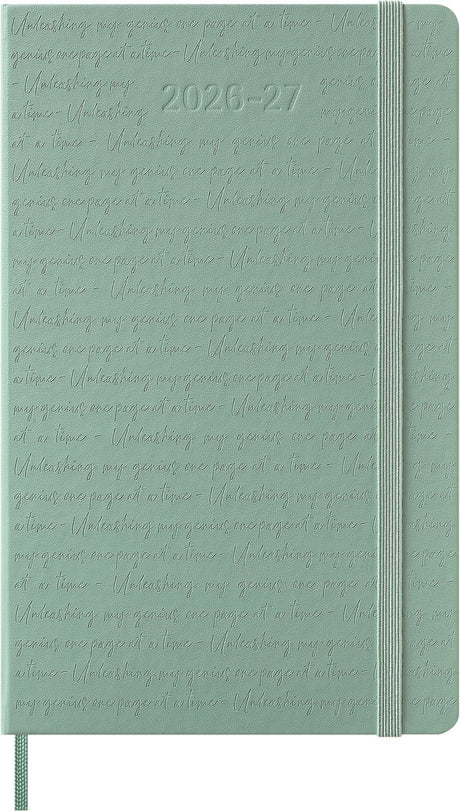 Unleashing my genius one page at a time - Unleashing my
genius one page at a time - Unleashing my genius one page at
- Unleashing my 2026-27 genius
a time - Unleashing my genius
at a time - Unleashing my genius one page at a time -
Unleashing my genius one page at a time - Unleashing my
genius one page at a time - Unleashing my genius one page at
a time - Unleashing my genius one page at a time - Unleashing
my genius one page at a time - Unleashing my genius one page
at a time - Unleashing my genius one page at a time -
Unleashing my genius one page at a time - Unleashing my
genius one page at a time - Unleashing my genius one page at
a time - Unleashing my genius one page at a time - Unleashing
my genius one page at a time - Unleashing my genius one page
at a time - Unleashing my genius one page at a time -
Unleashing my genius one page at a time - Unleashing my
genius one page at a time - Unleashing my genius one page at
a time - Unleashing my genius one page at a time - Unleashing
my genius one page at a time - Unleashing my genius one page
at a time - Unleashing my genius one page at a time -
Unleashing my genius one page at a time - Unleashing my
genius one page at a time - Unleashing my genius one page at
a time - Unleashing my genius one page at a time - Unleashing
my genius one page at a time - Unleashing my genius one page